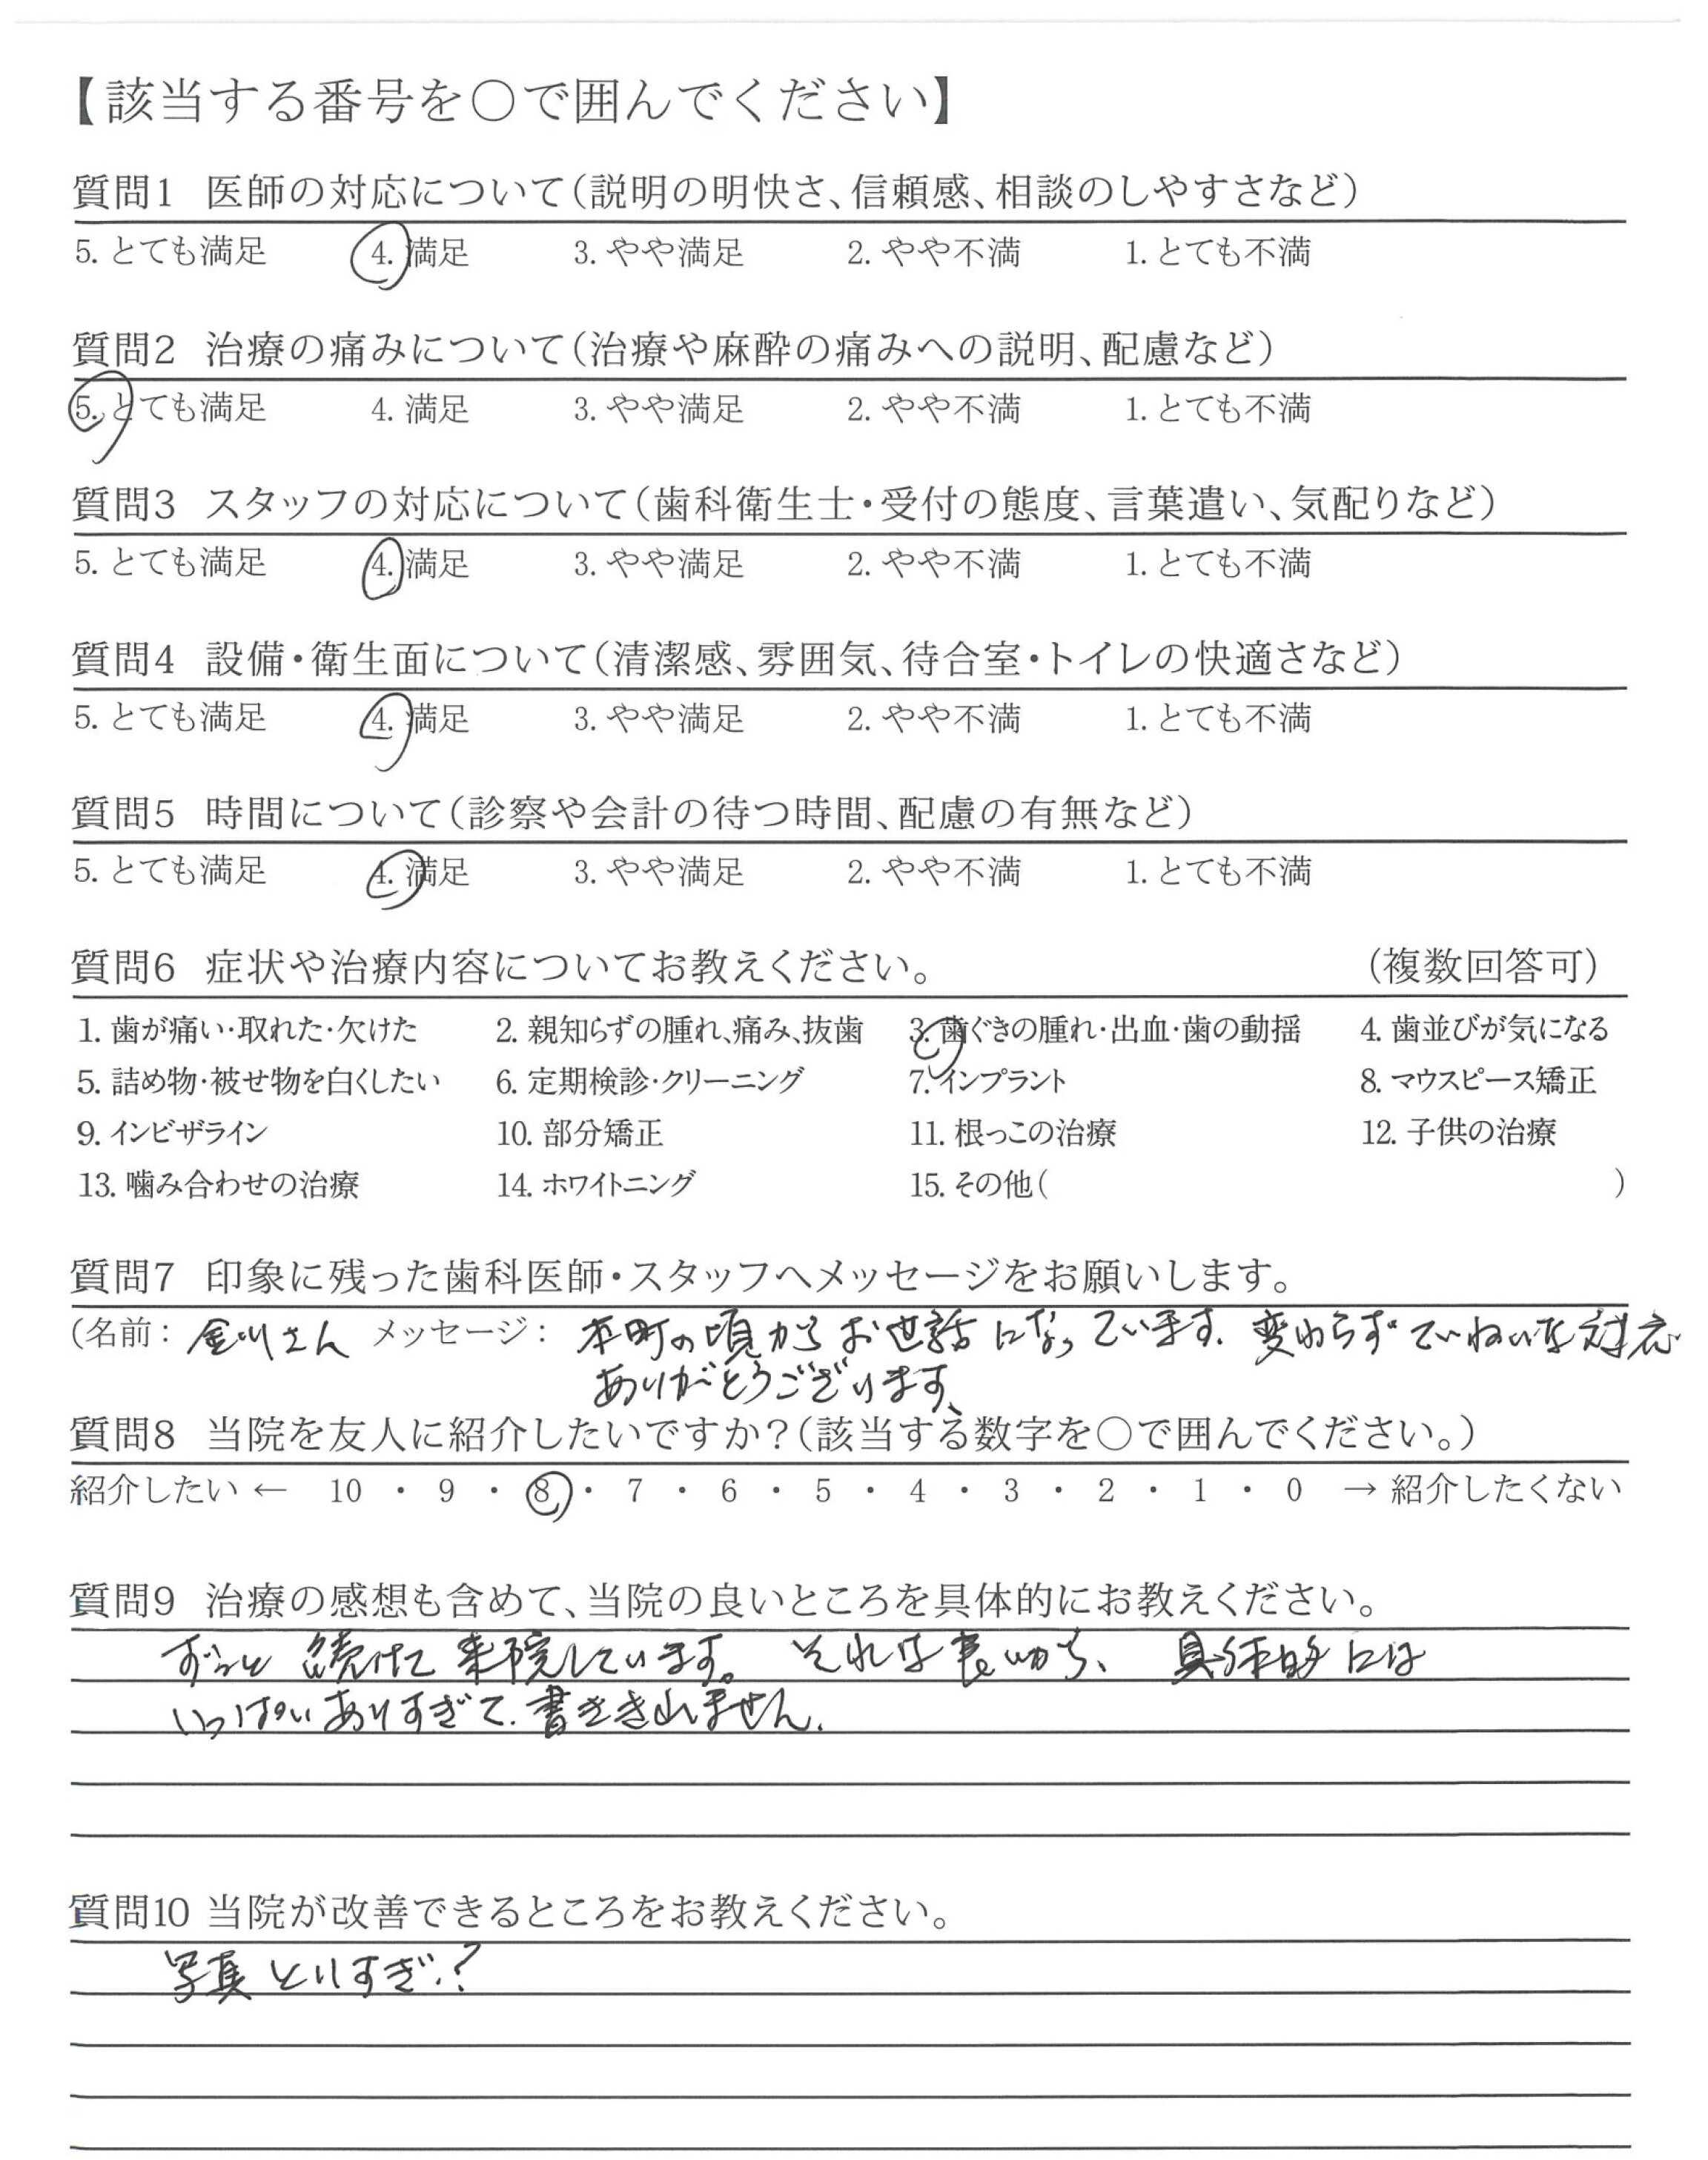 【該当する番号を○で囲んでください】
質問1 医師の対応について(説明の明快さ、信頼感、相談のしやすさなど)
5. とても満足 4. 満足 3. やや満足 2. やや不満 1. とても不満
質問2 治療の痛みについて(治療や麻酔の痛みへの説明、配慮など)
5. とても満足 4. 満足 3. やや満足 2. やや不満 1. とても不満
質問3 スタッフの対応について(歯科衛生士・受付の態度、言葉遣い、気配りなど)
5. とても満足 4. 満足 3. やや満足 2. やや不満 1. とても不満
質問4 設備・衛生面について(清潔感、雰囲気、待合室・トイレの快適さなど)
5. とても満足 4. 満足 3. やや満足 2. やや不満 1. とても不満
質問5 時間について(診察や会計の待つ時間、配慮の有無など)
5. とても満足 4. 満足 3. やや満足 2. やや不満 1. とても不満
質問6 症状や治療内容についてお教えください。 (複数回答可)
1. 歯が痛い・取れた・欠けた 2. 親知らずの腫れ、痛み、抜歯 3. 歯ぐきの腫れ・出血・歯の動揺 4. 歯並びが気になる
5. 詰め物・被せ物を白くしたい 6. 定期検診・クリーニング 7. インプラント 8. マウスピース矯正
9. インビザライン 10. 部分矯正 11. 根っこの治療 12. 子供の治療
13. 噛み合わせの治療 14. ホワイトニング 15. その他( )
質問7 印象に残った歯科医師・スタッフへメッセージをお願いします。
(名前: 金川さん メッセージ: 本町の頃からお世話になっています。変わらずていねいな対応
ありがとうございます、
質問8 当院を友人に紹介したいですか?(該当する数字を○で囲んでください。)
紹介したい ← 10 ・ 9 ・ 8 ・ 7 ・ 6 ・ 5 ・ 4 ・ 3 ・ 2 ・ 1 ・ 0 → 紹介したくない
質問9 治療の感想も含めて、当院の良いところを具体的にお教えください。
ずっと続けて来院しています。それは良いから、具体的には
いっぱいありすぎて、書ききれません。
質問10 当院が改善できるところをお教えください。
写真とりすぎ.?